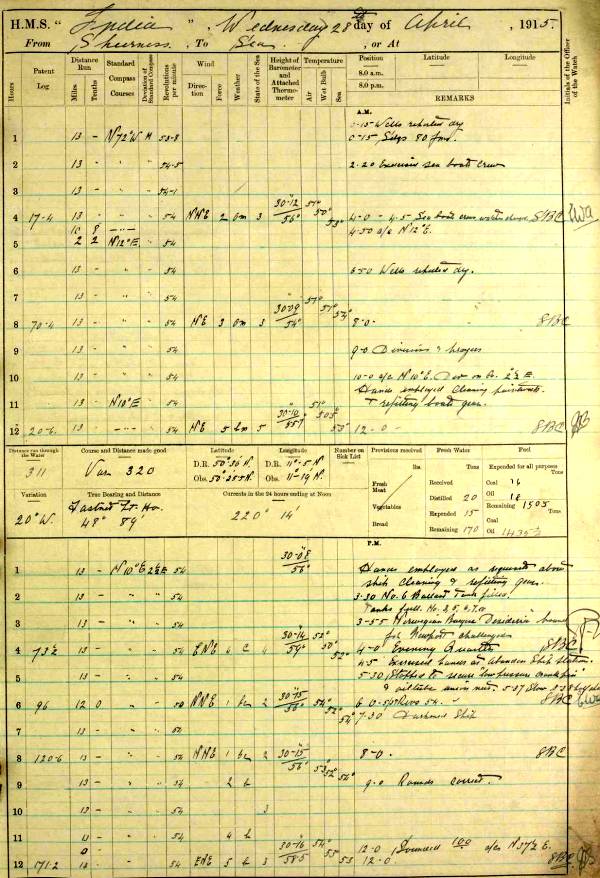 H.M.S. "India", Wednesday 28th day of April, 1915.
From Sheerness, To Sea, or At
Hours
Patent Log
Distance Run
Miles
Tenths
Standard Compass Courses
Deviation of Standard Compass
Revolutions per minute
Wind
Direction
Force
Weather
State of the Sea
Height of Barometer and Attached Thermometer
Temperature
Air
Wet Bulb
Sea
Position
8.0 a.m.
8.0 p.m.
Latitude
Longitude
REMARKS
Initials of the Officer of the Watch
A.M.
0-15 Wells reported dry
1 13 - N 72° W 53-8 0-15, Sdgs 80 fms.
2 13 - " " 54-5 2-20 Exercise sea boats crew
3 13 - " " 54-1
4 17-4 13 - " " 54 NNE 2 om 3 30-12 56° 51° 50° 53° 4-0 - 4-5 Sea boats crew SBC
10 8 4-50 a/c N 12° E.
5 2 2 N 12° E. 54
6 13 - " " 54 6-50 Wells reported dry.
7 13 - " " 54
8 70-4 13 - " " 54 NE 3 om 3 30-09 54° 51° 51° 54° 8-0- SBC
9 13 - " " 54 9-0 Divisions & prayers
10 13 - " " 54 10-0 a/c N 10° E. Dev on Co. 2½ E.
Hands employed cleaning paintwork
11 13 - N 10° E " 54 & refitting boats gear.
12 20-6 13 - " 54 NE 5 5 30-10 55° 12-0- SBC
Distance run through the Water
311
Course and Distance made good
Var. 320
Latitude
D.R. 50° 30' N.
Obs. 50° 25.5 N.
Longitude
D.R. 11° 5' W.
Obs. 11° 19' W.
Number on Sick List
Provisions received
lbs.
Fresh Meat
Vegetables
Bread
Fresh Water
Tons
Received
Distilled 20
Expended 15
Remaining 170
Fuel
Expended for all purposes
Tons
Coal 76
Oil 18
Remaining 1505
Coal
Oil
Variation
20° W.
True Bearing and Distance
Fastnet Lt. Ho.
48° 89'
Currents in the 24 hours ending at Noon
220° 14'
P.M.
1 13 - N 10° E 2½ E 54 30-08 56° Hands employed as requisite about
ship cleaning & refitting gear.
2 13 - " " 54 3-30 No. 6 Ballast Tank filled.
Tanks full.
3 13 - " " 54 3-55 Norwegian Barque bound
for Newport challenged
4 73½ 13 - " " 54 ENE 4 c 4 30-14 54° 52° 50° 52° 4-0 Evening Quarters SBC
4-5 Exercised hands at Abandon Ship Stations.
5 13 - " " 54 5-30 Stopped to secure low pressure crank pin
6 96 12 0 " " 50 NNE 1 bc 2 30-15 56° 54° 52° 54° 6-0 Revs 54. SBC
7 13 - " " 54 7-30 Darkened Ship
8 120-6 13 - " " 54 NNE 1 bc 2 30-15 56° 53° 52° 54° 8-0. SBC
9 13 - " " 54 2 b 9-0 Rounds correct.
10 13 - " " 54 3
11 13 - " " 54 4 b
12 171-2 54 ENE 5 b 3 30-16 58.5 54° 53 12-0 Sounded 100 a/c N 37½ E.
12-0. SBC